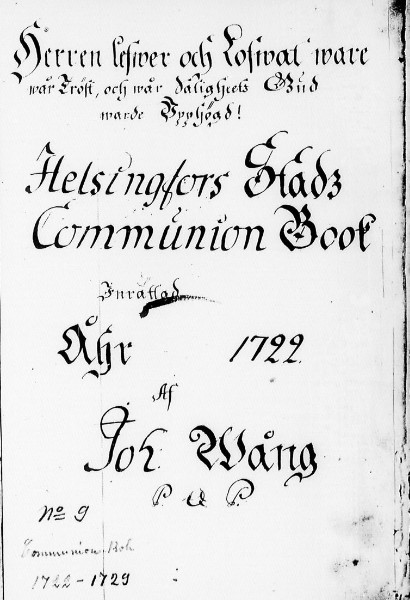 Herren lefwer och Lofwat ware
wår Tröst, och wår Salighets Gud
warde Upphögd!
Helsingfors Stadz
Communion Book
Inrättad
Åhr 1722
Af
Joh. Wång
P. & P.
No 9
Communion Bok
1722-1729